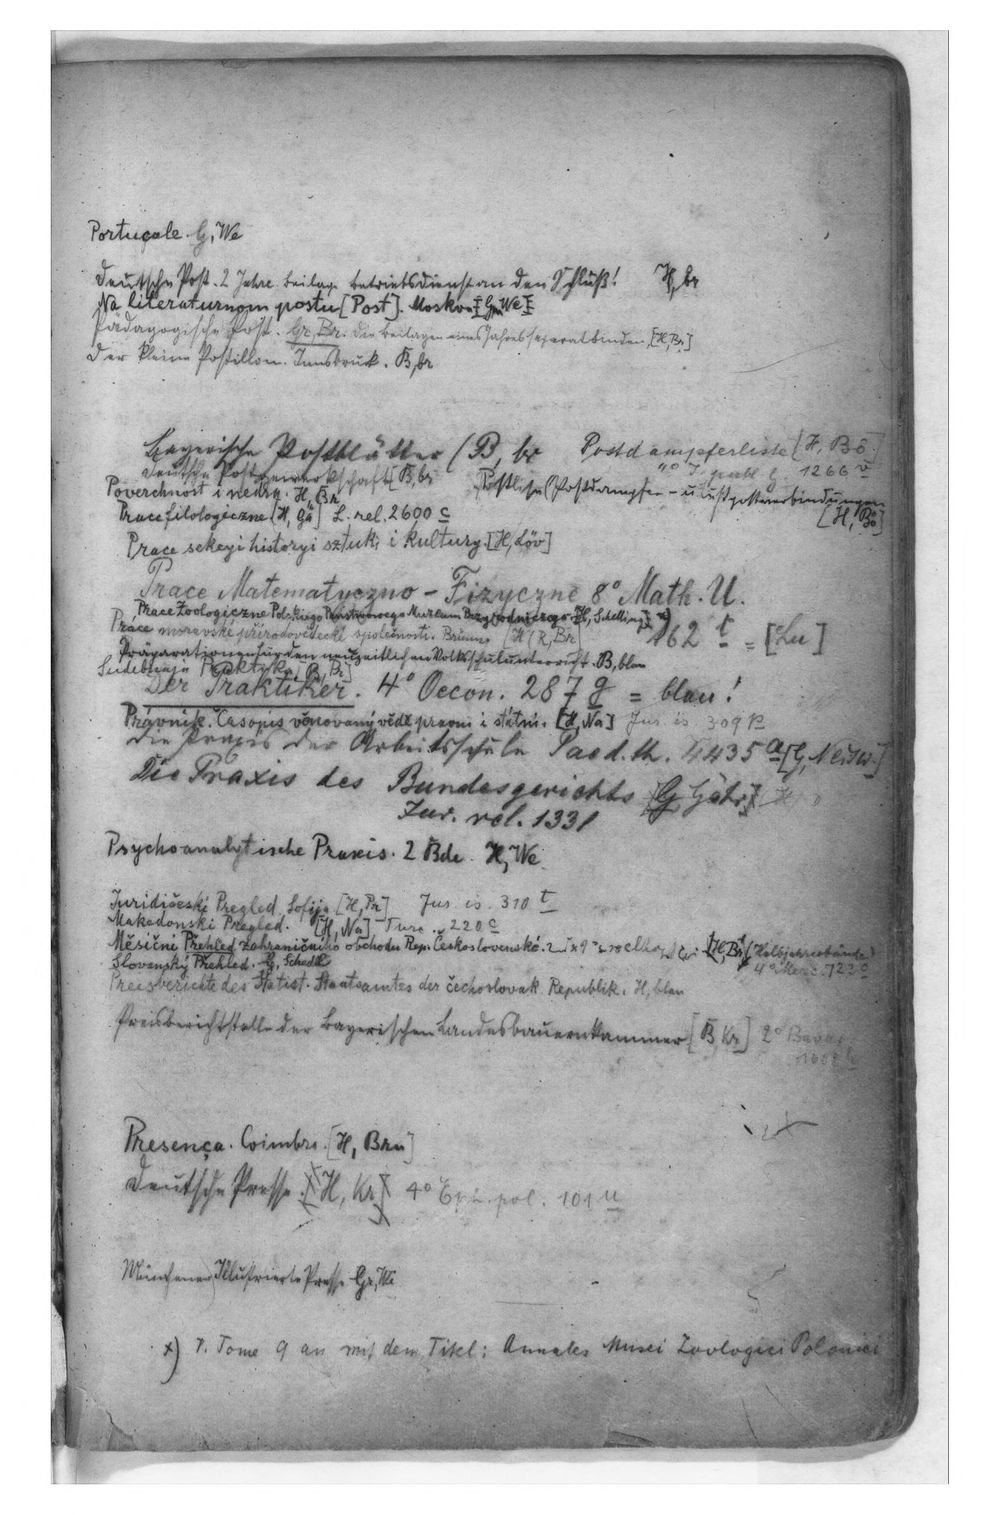 Portucale. G, We
Deutsche Post. 2 Jahre. Beilage betriebsdienst an den Schluß! H, br
Na literaturnom postu [Post]. Moskva [Gr, We]
Pädagogische Post. Gr, Br. Die Beilagen eines Jahres separat binden. [H, Br.]
Der kleine Postillon. Innsbruck. B, br
Bayerische Postblätter (B, br Postdampferliste [H, Bö.]
Deutsche Postgewerkschaft [B, br 4° J. publ. g. 1266 v
Poverchnost i nedra. H, Br Postliste (Postdampfer- u. Luftpostverbindungen
Prace filologiczne [H, Gä] L. rel. 2600 c [H, Bö]
Prace sekcyi historyi sztuki i kultury. [H, Löv]
Prace Matematyczno-Fizyczne 8° Math. U.
Prace Zoologiczne Polskiego Państwowego Muzeum Przyrodniczego. [H, Schelling] x) 162 t = [Lu]
Práce moravské přírodovědecké společnosti. Brünn. [H, Br]
Präparationen für den neuzeitlichen Volksschulunterricht. B, blau
Sudebnaja Praktika [B, Br]
Der Praktiker. 4° Oecon. 287 g = blau!
Právník. Časopis věnovaný vědě právní i státní. [H, Na] Jur. is. 309 p
Die Praxis der Arbeitsschule Paed. th. 4435 a [G,
Die Praxis des Bundesgerichts [G Gähr]
Jur. rel. 1331
Psychoanalytische Praxis. 2 Bde. H, We
Juridičeski Pregled. Sofija [H, Pr] Jus. is. 310 t
Makedonski Pregled. [H, Na] Turc. 220 c
Měsíční Přehled zahraničního obchodu Rep. Československé. [H, Br] (Halbjahresbände)
Slovanský Přehled. G, Schedl 4° Merc. 123 c
Preisberichte des Statist. Staatsamtes der čechoslovak. Republik. H, blau
Preisberichtstelle der Bayerischen Landesbauernkammer [B, Kr] 2° Bavar.
Presença. Coimbra. [H, Brn]
Deutsche Presse. [H, Kr] 4° Eph. pol. 101 u
Münchener Illustrierte Presse Gr, We
x) v. Tome 9 an mit dem Titel: Annales Musei Zoologici Polonici